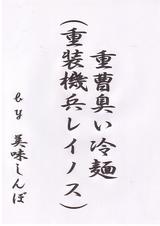 重曹臭い冷麺
(重装機兵レイノス)
by 美味しんぼ